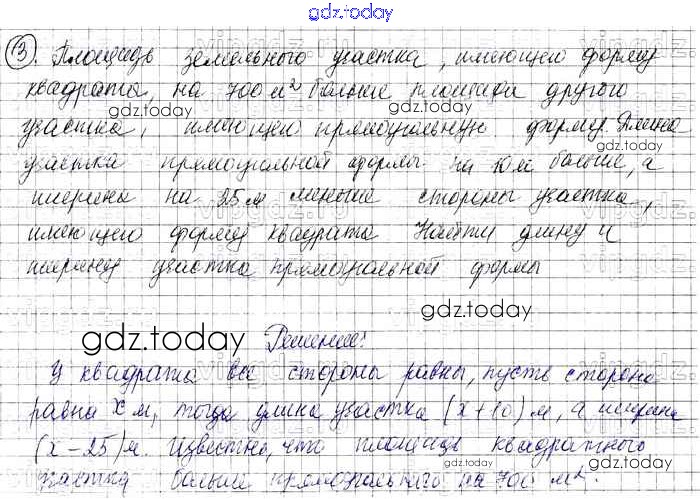 gdz.today
3. Площадь земельного участка, имеющего форму
квадрата, на 700 м² больше площади другого
gdz.today
gdz.today
участка, имеющего прямоугольную форму. Длина
участка прямоугольной формы на 10 м больше, а
ширина на 25 м меньше стороны участка,
имеющего форму квадрата Найти длину и
ширину участка прямоугольной формы
gdz.today
gdz.today
Решение:
У квадрата все стороны равны, пусть сторона
равна x м, тогда длина участка (x+10) м, а ширина
(x-25) м. Известно, что площадь квадратного
участка больше прямоугольного на 700 м².
gdz.today